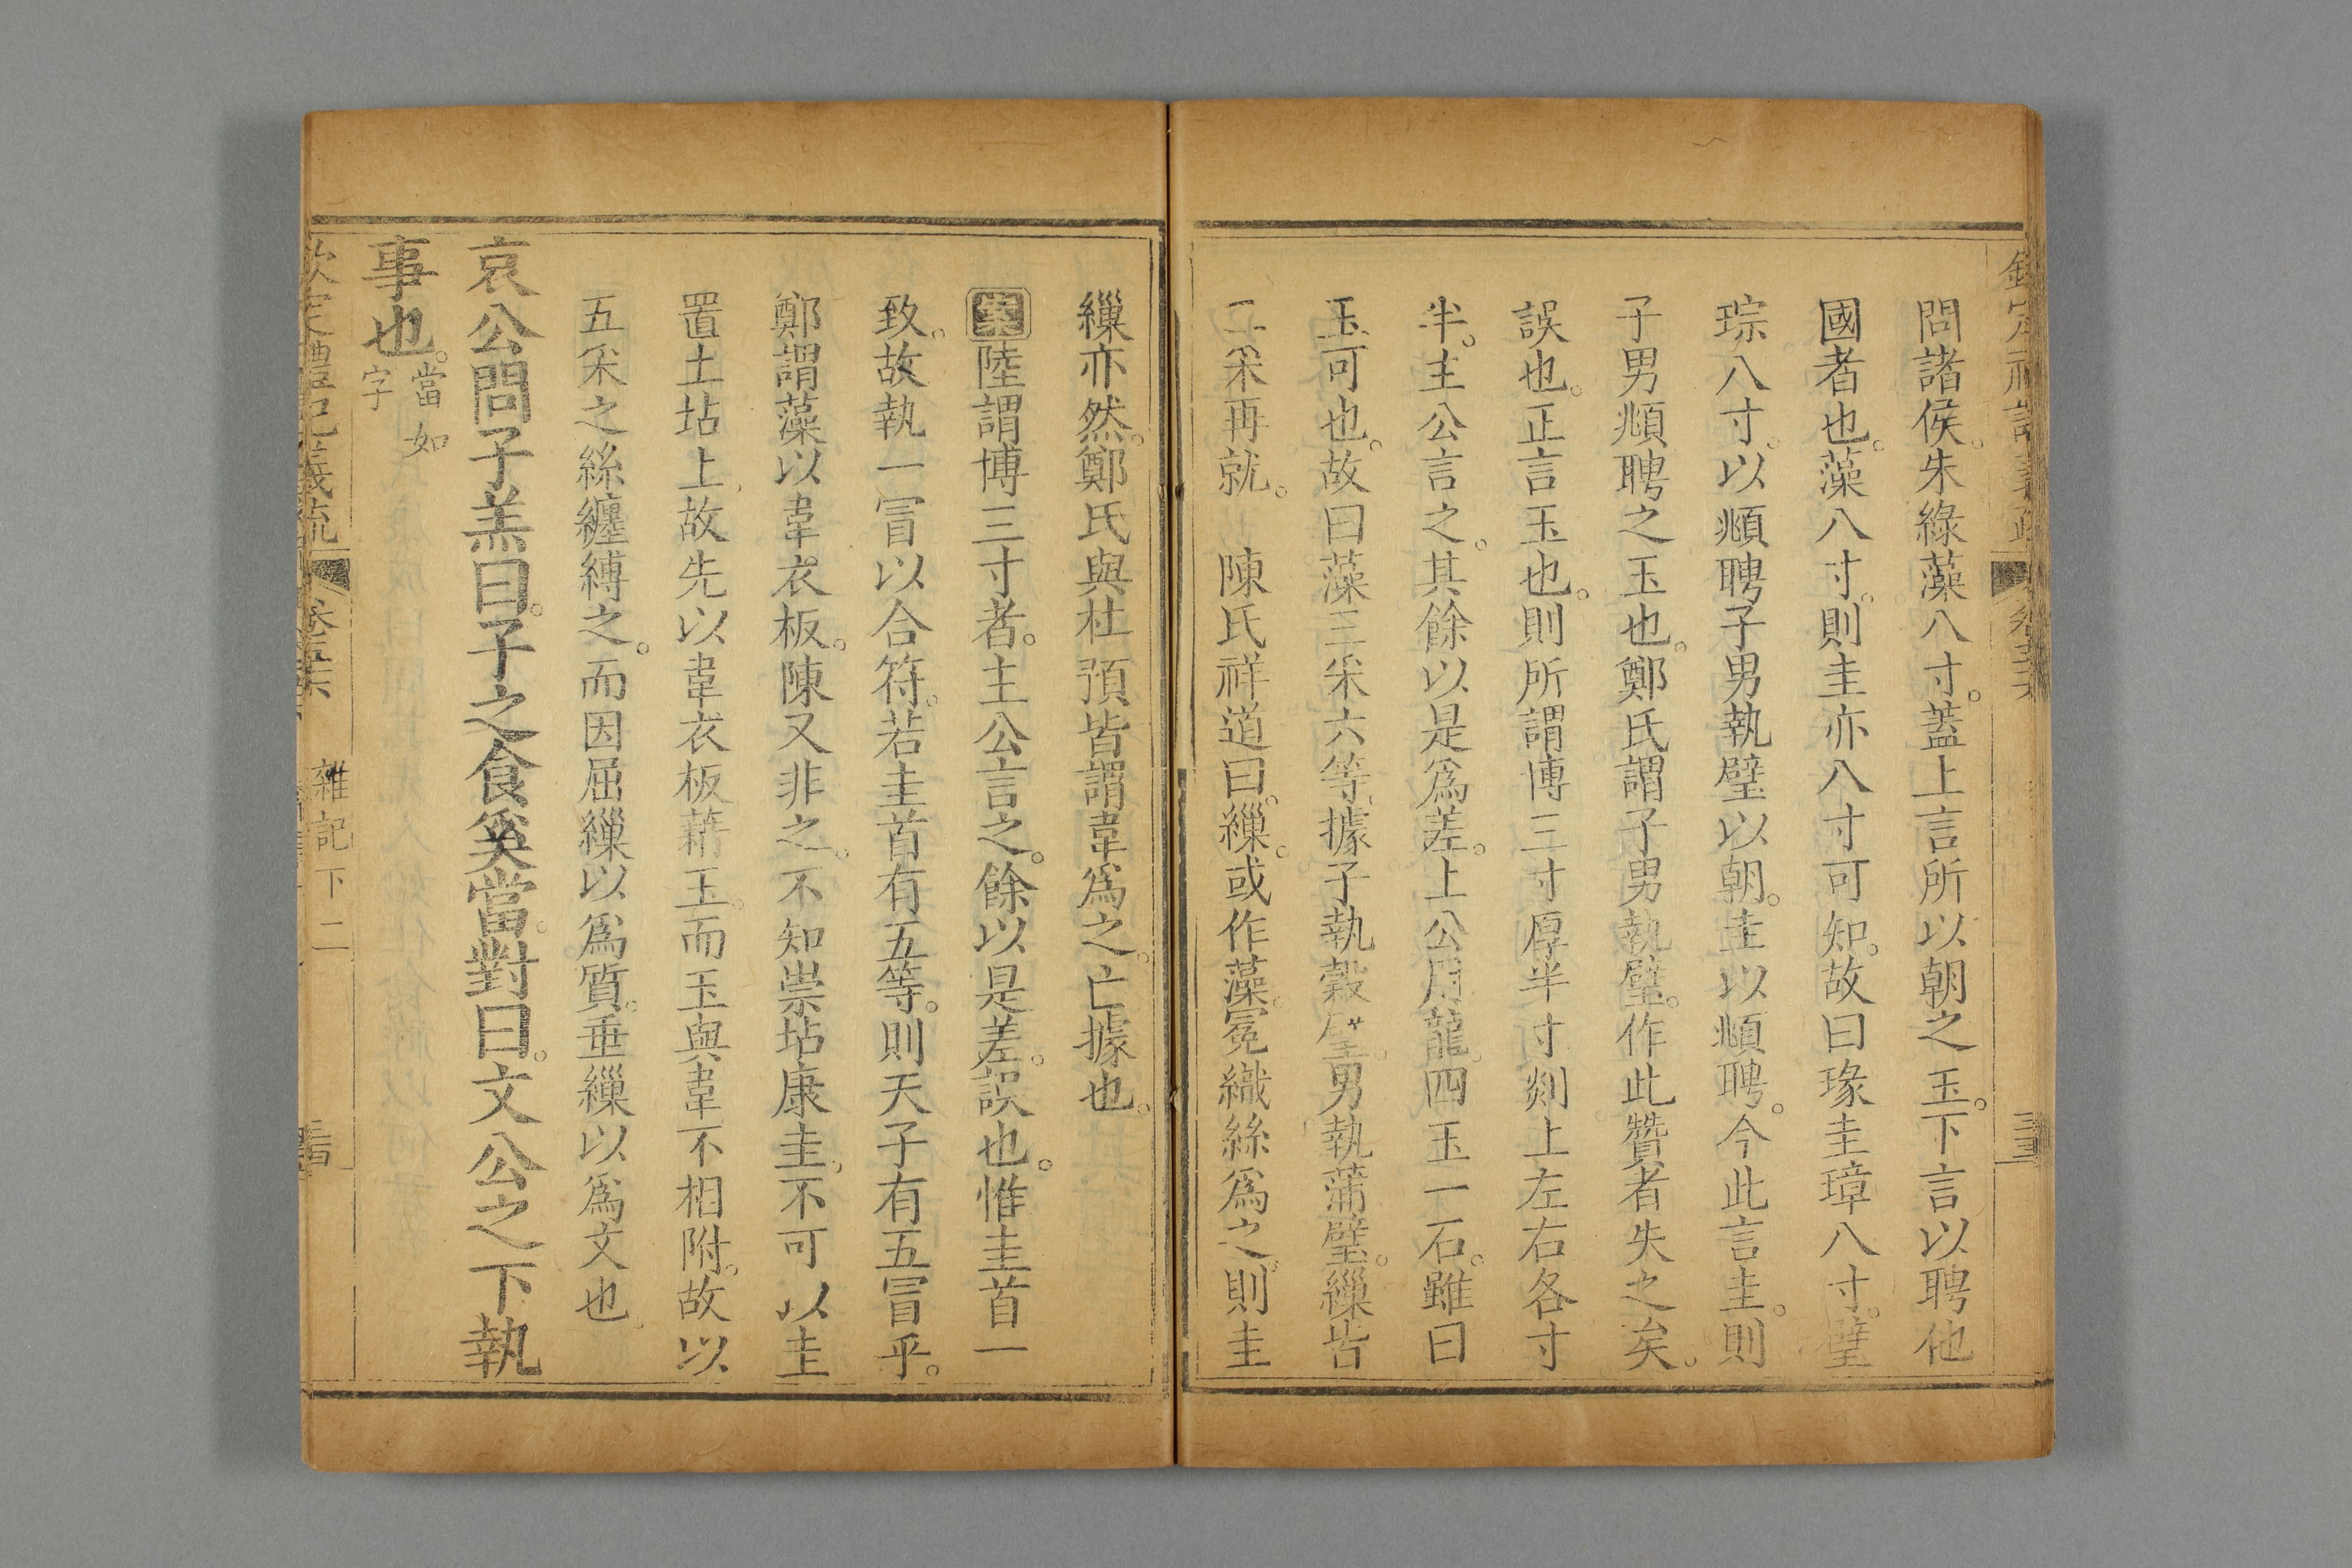 問諸侯。朱綠藻八寸。蓋上言所以朝之玉。下言以聘他
國者也。藻八寸。則圭亦八寸可知。故曰瑑圭璋八寸。璧
琮八寸。以頫聘子男執璧以朝。圭以頫聘。今此言圭。則
子男頫聘之玉也。鄭氏謂子男執璧。作此贊者失之矣。
誤也。正言玉也。則所謂博三寸厚半寸剡上左右各寸
半。主公言之。其餘以是爲差。上公用龍。四玉一石。雖曰
玉可也。故曰藻三采六等。據子執穀璧。男執蒲璧。繅皆
二采再就。 陳氏祥道曰。繅。或作藻。冕織絲爲之。則圭
繅亦然。鄭氏與杜預皆謂韋爲之。亡據也。
案陸謂博三寸者。主公言之。餘以是差。誤也。惟圭首一
致。故執一冒以合符。若圭首有五等。則天子有五冒乎。
鄭謂藻以韋衣板。陳又非之。不知崇坫康圭。不可以圭
置土坫上。故先以韋衣板藉玉。而玉與韋不相附。故以
五采之絲纏縛之。而因屈繅以爲質。垂繅以爲文也
哀公問子羔曰。子之食奚當。對曰。文公之下執
事也。當如字
欽定禮記義疏 卷五十六 雜記下二